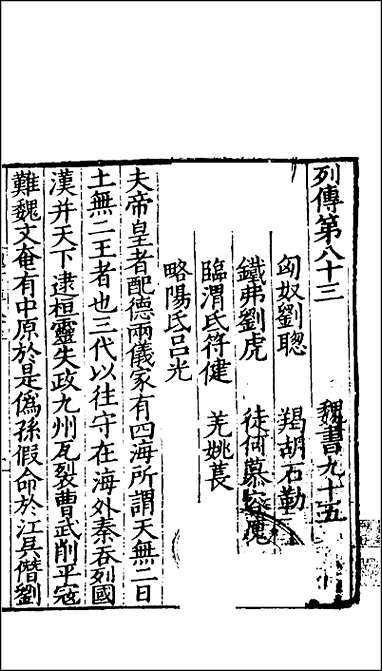 列傳第八十三 魏書九十五
匈奴劉聰 羯胡石勒
鐵弗劉虎 徒何慕容廆
臨渭氐苻健 羌姚萇
略陽氐呂光
夫帝皇者配德兩儀家有四海所謂天無二日
土無二王者也三代以往守在海外秦吞列國
漢并天下逮桓靈失政九州瓦裂曹武削平寇
難魏文奄有中原於是偽孫假命於江吳僭劉